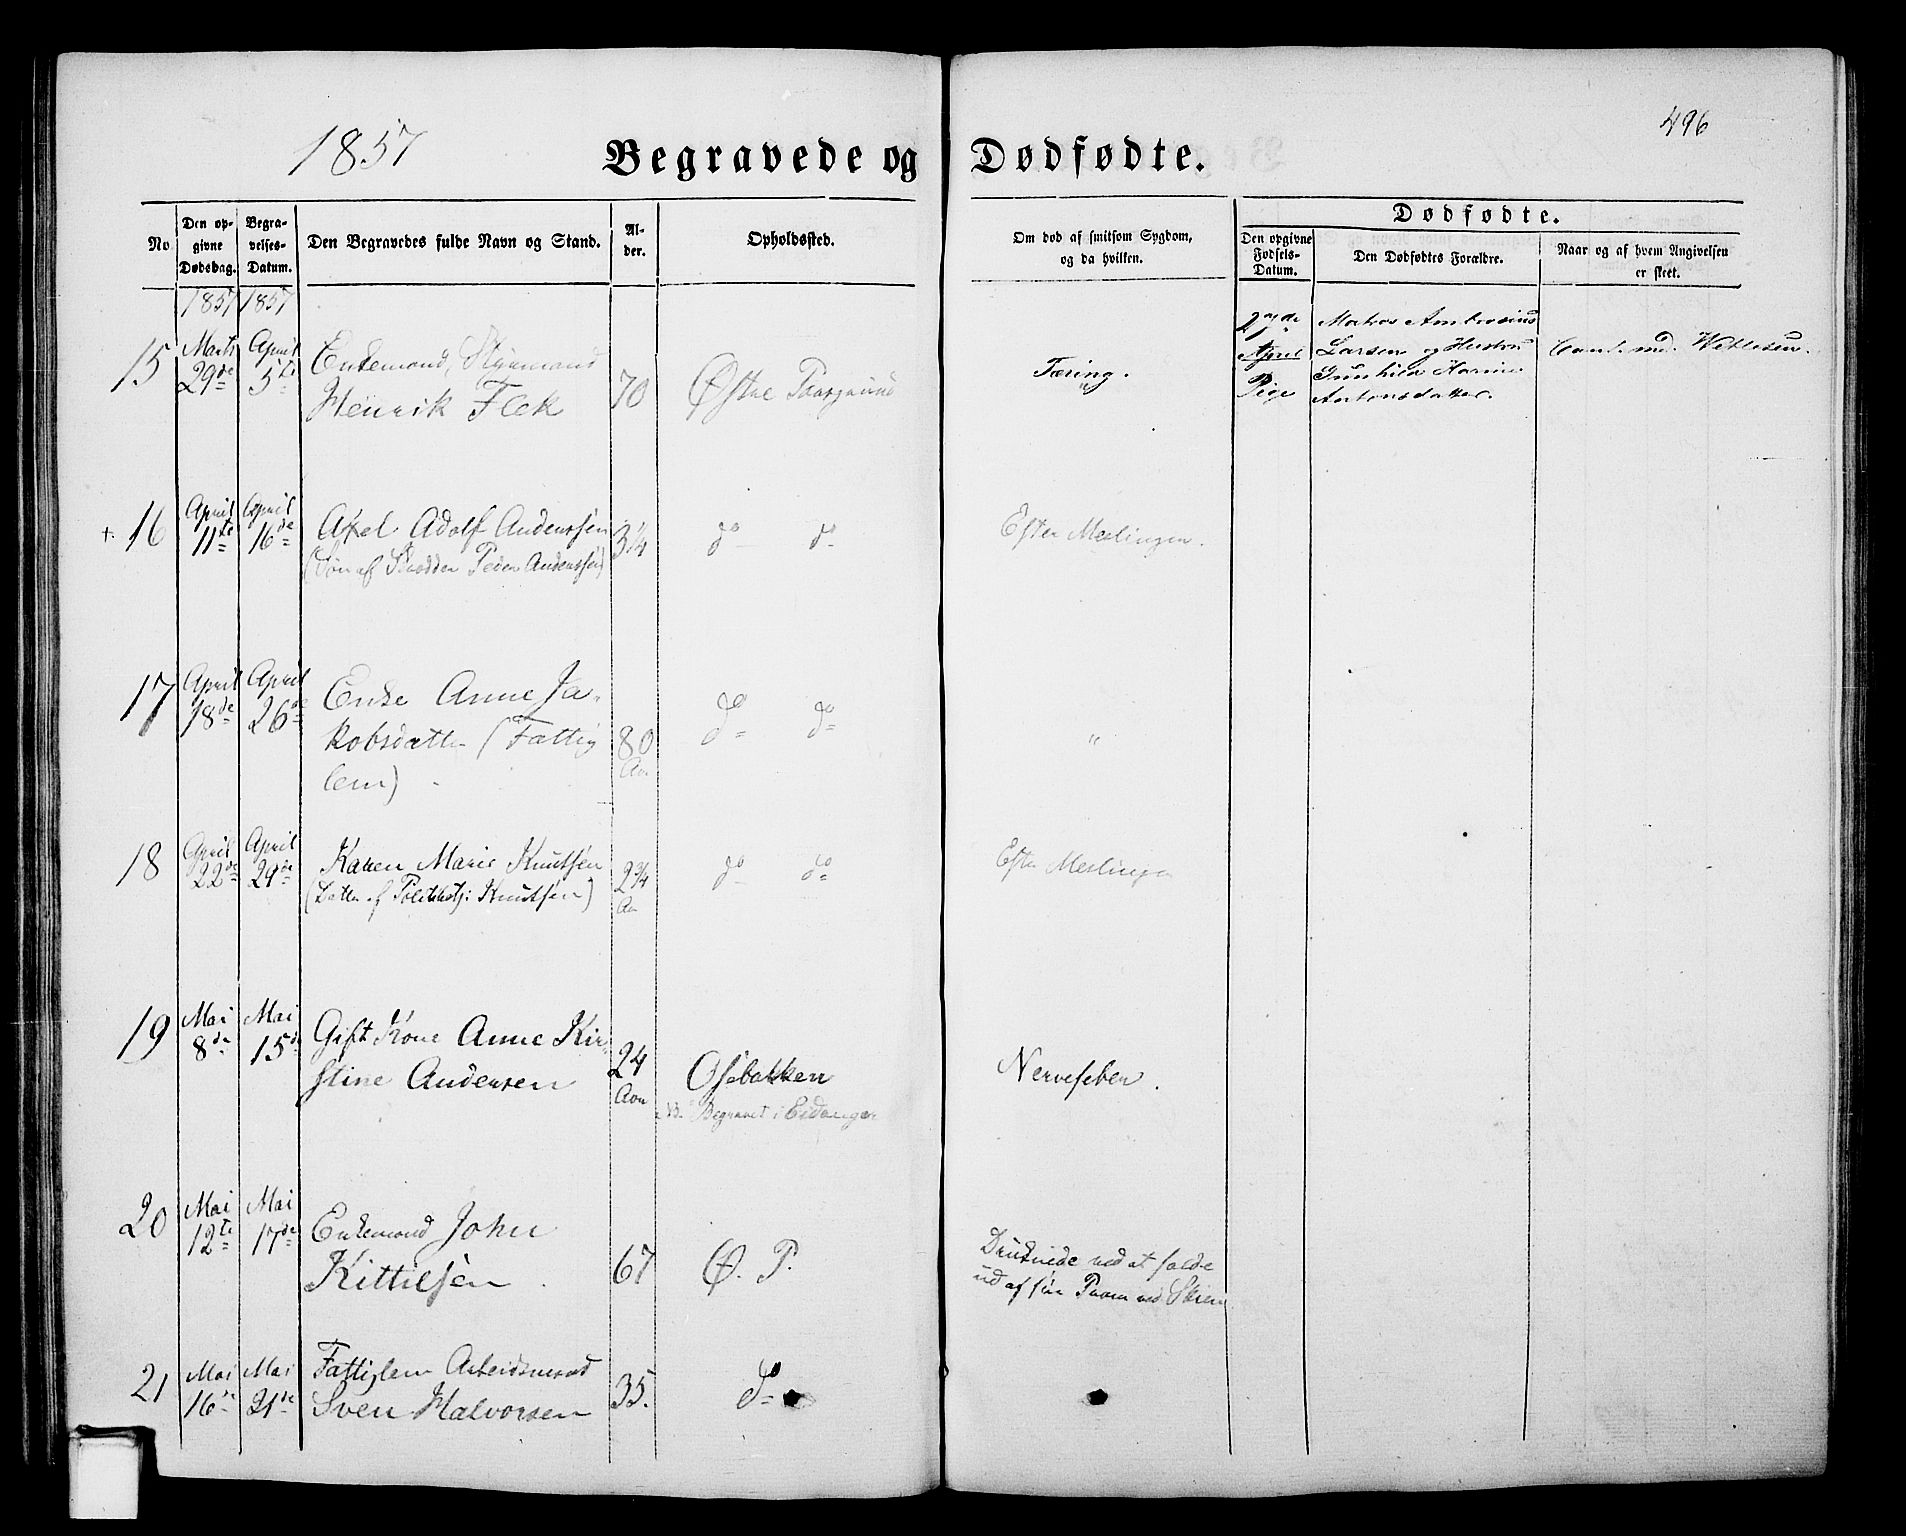 1857
Begravede og Dødfødte.
496
No
Den opgivne Dødsdag.
Begravelses-Datum.
Den Begravedes fulde Navn og Stand.
Alder.
Opholdssted.
Om død af smitsom Sygdom, og da hvilken.
Dødfødte.
Den opgivne Fødsels-Datum.
Den Dødfødtes Forældre.
Naar og af hvem Angivelsen er skeet.
1857 1857
15 Marts 29de April 5te Enkemand, Styrmand
Henrik Flek 70 Østre Porsgrund Tæring.
27de April Pige
Matros Ambrosius
Larsen og Hustru
Gunhild Karine
Antonsdatter.
Cand. med. Wetlesen.
+ 16 April 11te April 16de Axel Adolf Anderssen 3¼ do do Efter Meslinger.
(Søn af Skredder Peder Anderssen)
17 April 18de April 26de Enke Anne Ja-
kobsdatter (Fattig 80 Aar do do "
lem)
18 April 22de April 29de Karen Marie Knutsen 2¾ Aar do do Efter Meslinger
(Datter af Politibetj: Knutsen)
19 Mai 8de Mai 15de Gift Kone Anne Kir-
stine Andersen 24 Aar Osebakken Nervefeber.
NB. Begravet i Eidanger
20 Mai 12te Mai 17de Enkemand John
Kittilsen 67 Ø. P. Druknede ved at falde
ud af sin Pram ved Skien
21 Mai 16de Mai 21de Fattiglem Arbeidsmand
Sven Halvorsen 35. do